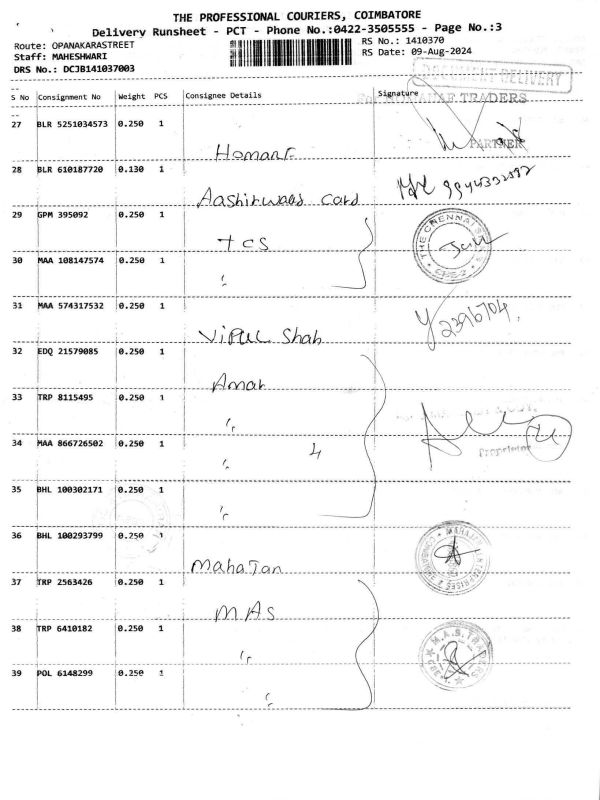 THE PROFESSIONAL COURIERS, COIMBATORE
Delivery Runsheet - PCT - Phone No.:0422-3505555 - Page No.:3
Route: OPANAKARASTREET RS No.: 1410370
Staff: MAHESHWARI RS Date: 09-Aug-2024
DRS No.: DCJB141037003
DOCUMENT DELIVERY
S No Consignment No Weight PCS Consignee Details Signature
TRADERS
27 BLR 5251034573 0.250 1
PARTNER
28 BLR 610187720 0.130 1
Aashirwaad Card
29 GPM 395092 0.250 1
TCS
THE CHENNAI
30 MAA 108147574 0.250 1
"
31 MAA 574317532 0.250 1
Vipul Shah
32 EDQ 21579085 0.250 1
Amar
33 TRP 8115495 0.250 1
"
34 MAA 866726502 0.250 1
" 4
Proprietor
35 BHL 100302171 0.250 1
"
36 BHL 100293799 0.250 1
Mahajan
37 TRP 2563426 0.250 1
MAS
38 TRP 6410182 0.250 1
"
M.A.S. TRADERS
39 POL 6148299 0.250 1
"